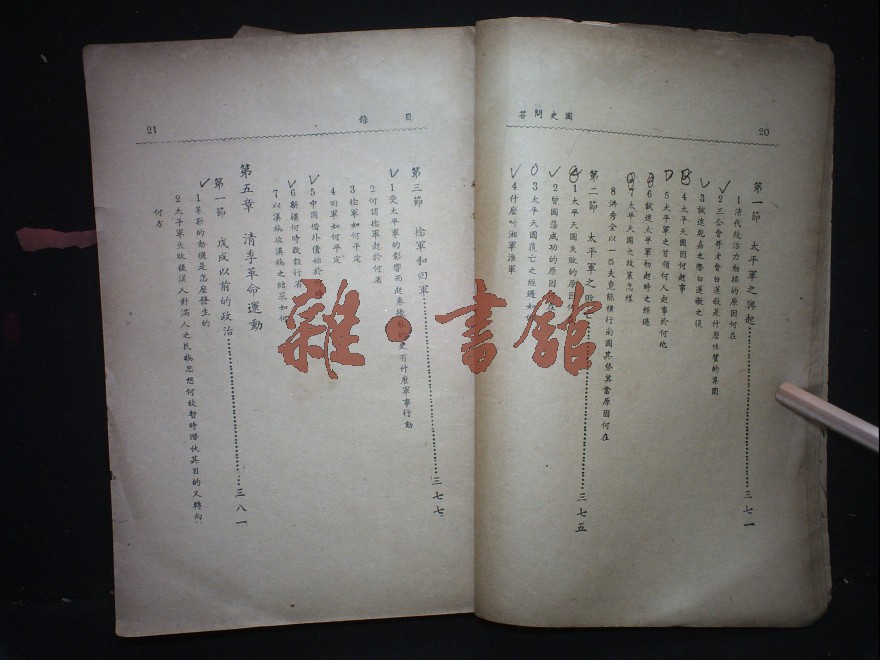 國史問答
20
第一節 太平軍之興起 三七一
1 清代統治力動搖的原因何在
2 三合會哥老會白蓮教是什麼性質的集團
3 試述乾嘉之際白蓮教之役
4 太平天國因何起事
5 太平軍之首領何人起事於何地
6 試述太平軍初起時之經過
7 太平天國之政策怎樣
8 洪秀全以一匹夫竟能橫行南國其勢甚當原因何在
第二節 太平軍之敗 三七五
1 太平天國失敗的原因何在
2 曾國藩成功的原因 在
3 太平天國覆亡之經過如
4 什麼叫湘軍淮軍
目錄
21
第三節 捻軍和回軍 三七七
1 受太平軍的影響而起 的更有什麼軍事行動
2 何謂捻軍起於何省
3 捻軍如何平定
4 回軍如何平定
5 中國借外債始於
6 新疆何時改設行省
7 以漢族攻漢族之結果如何
第五章 清季革命運動
第一節 戊戌以前的政治 三八一
1 革新的動機是怎麼發生的
2 太平軍失敗後漢人對滿人之民族思想何故暫時潛伏其目的又轉向
何方
雜·書館